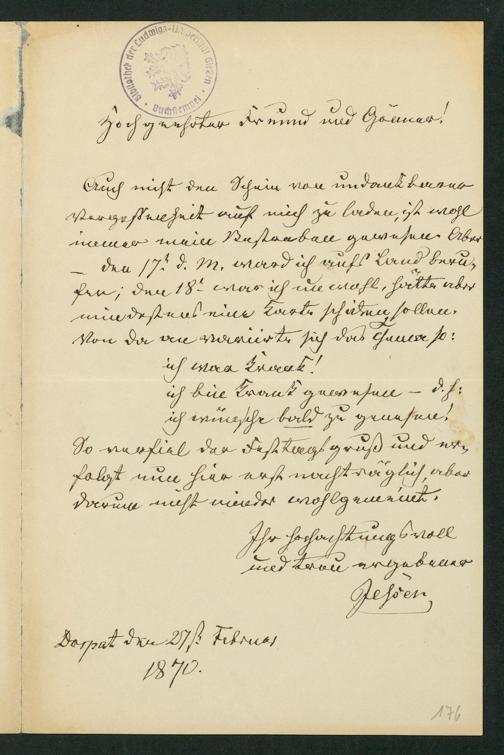 Bibliothek der Ludwigs-Universität Giessen
Buchstempel
Hochgeehrter Freund und Gönner!
Auch nicht den Schein von undankbarer
Vergessenheit auf mich zu laden, ist wohl
immer mein Bestreben gewesen. Aber
— den 17t. d. M. ward ich aufs Land beru-
fen; den 18t. war ich unwohl, hätte aber
mindestens eine Karte schicken sollen.
Von da an variirte sich das Thema so:
ich war krank!
ich bin krank gewesen — d. h:
ich wünsche bald zu genesen!
So verfiel der Festtagsgruß und er-
folgt nun hier erst nachträglich, aber
darum nicht minder wohlgemeint.
Ihr hochachtungsvoll
und treu ergebener
Jessen
Dorpat den 27st. Februar
1870.
176